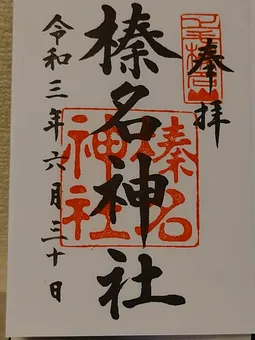 奉拝
榛名神社
榛名
神社
令和三年六月三十日